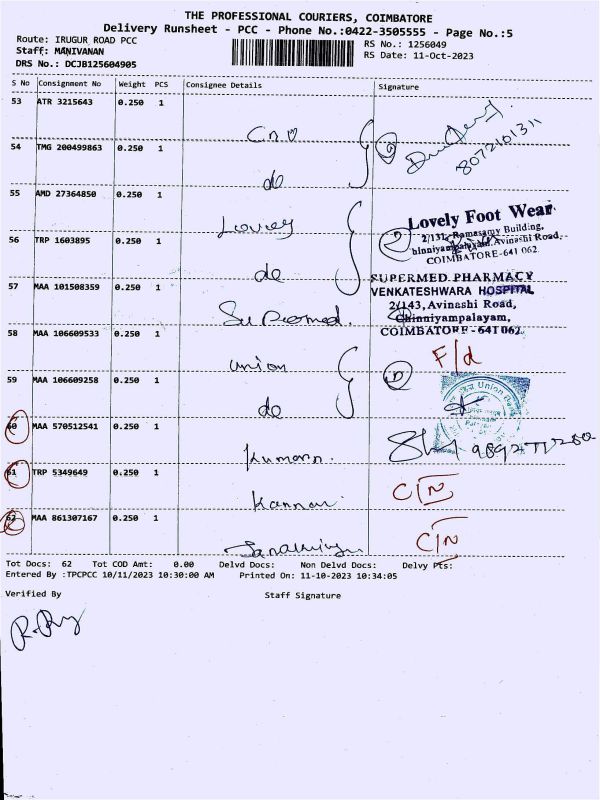 THE PROFESSIONAL COURIERS, COIMBATORE
Delivery Runsheet - PCC - Phone No.:0422-3505555 - Page No.:5
Route: IRUGUR ROAD PCC
Staff: MANIVANAN
DRS No.: DCJB125604905
RS No.: 1256049
RS Date: 11-Oct-2023
S No Consignment No Weight PCS Consignee Details Signature
53 ATR 3215643 0.250 1
8072101311
54 TMG 200499863 0.250 1
do
55 AMD 27364850 0.250 1
Lovely
Lovely Foot Wear
2/131, Ramasamy Building,
hinniyampalayam, Avinashi Road,
COIMBATORE-641 062.
56 TRP 1603895 0.250 1
do
57 MAA 101508359 0.250 1
Supermed.
SUPERMED PHARMACY
VENKATESHWARA HOSPITAL
2/143, Avinashi Road,
Chinniyampalayam,
COIMBATORE - 641 062.
58 MAA 106609533 0.250 1
union
F/d
59 MAA 106609258 0.250 1
do
Union Bank
60 MAA 570512541 0.250 1
Kumaran
61 TRP 5349649 0.250 1
Kannan
C/N
62 MAA 861307167 0.250 1
C/N
Tot Docs: 62 Tot COD Amt: 0.00 Delvd Docs: Non Delvd Docs: Delvy Pts:
Entered By :TPCPCC 10/11/2023 10:30:00 AM Printed On: 11-10-2023 10:34:05
Verified By Staff Signature